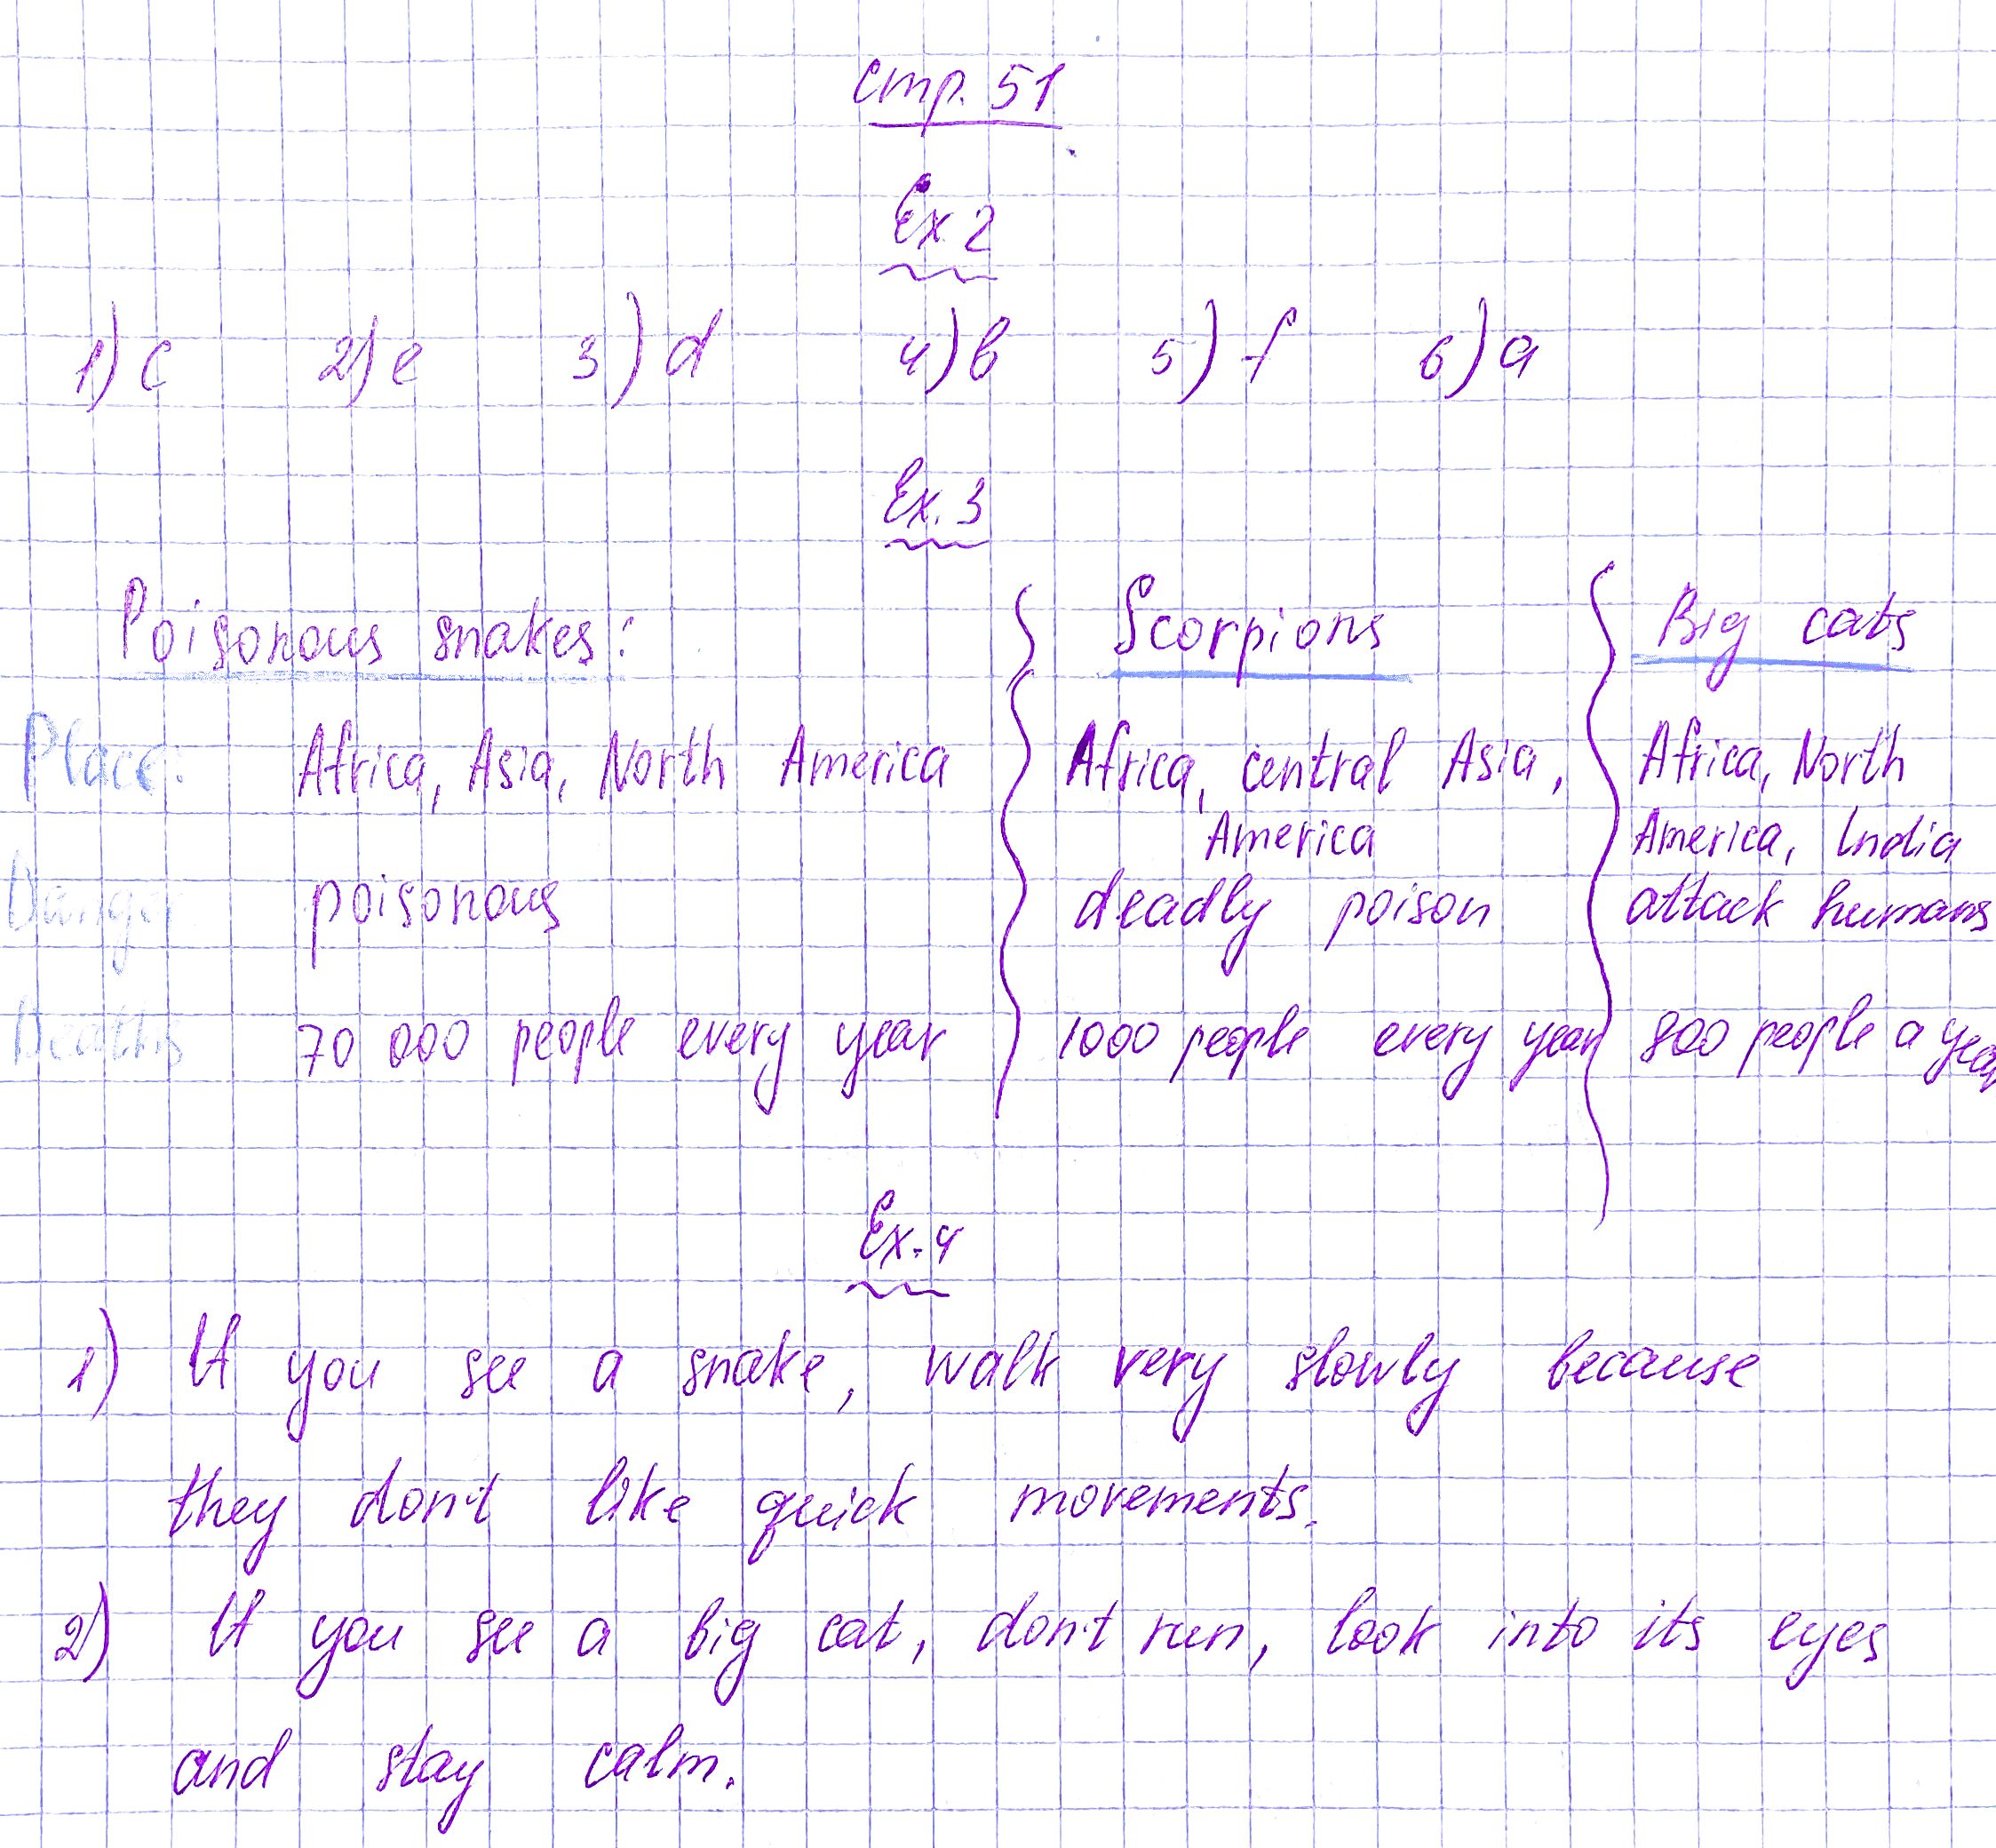 стр. 51
Ex 2
1) c 2) e 3) d 4) b 5) f 6) a
Ex. 3
Poisonous snakes: Scorpions Big cats
Place: Africa, Asia, North America Africa, central Asia, Africa, North
America America, India
Danger poisonous deadly poison attack humans
Deaths 70 000 people every year 1000 people every year 800 people a year
Ex. 4
1) If you see a snake, walk very slowly because
they don't like quick movements.
2) If you see a big cat, don't run, look into its eyes
and stay calm.